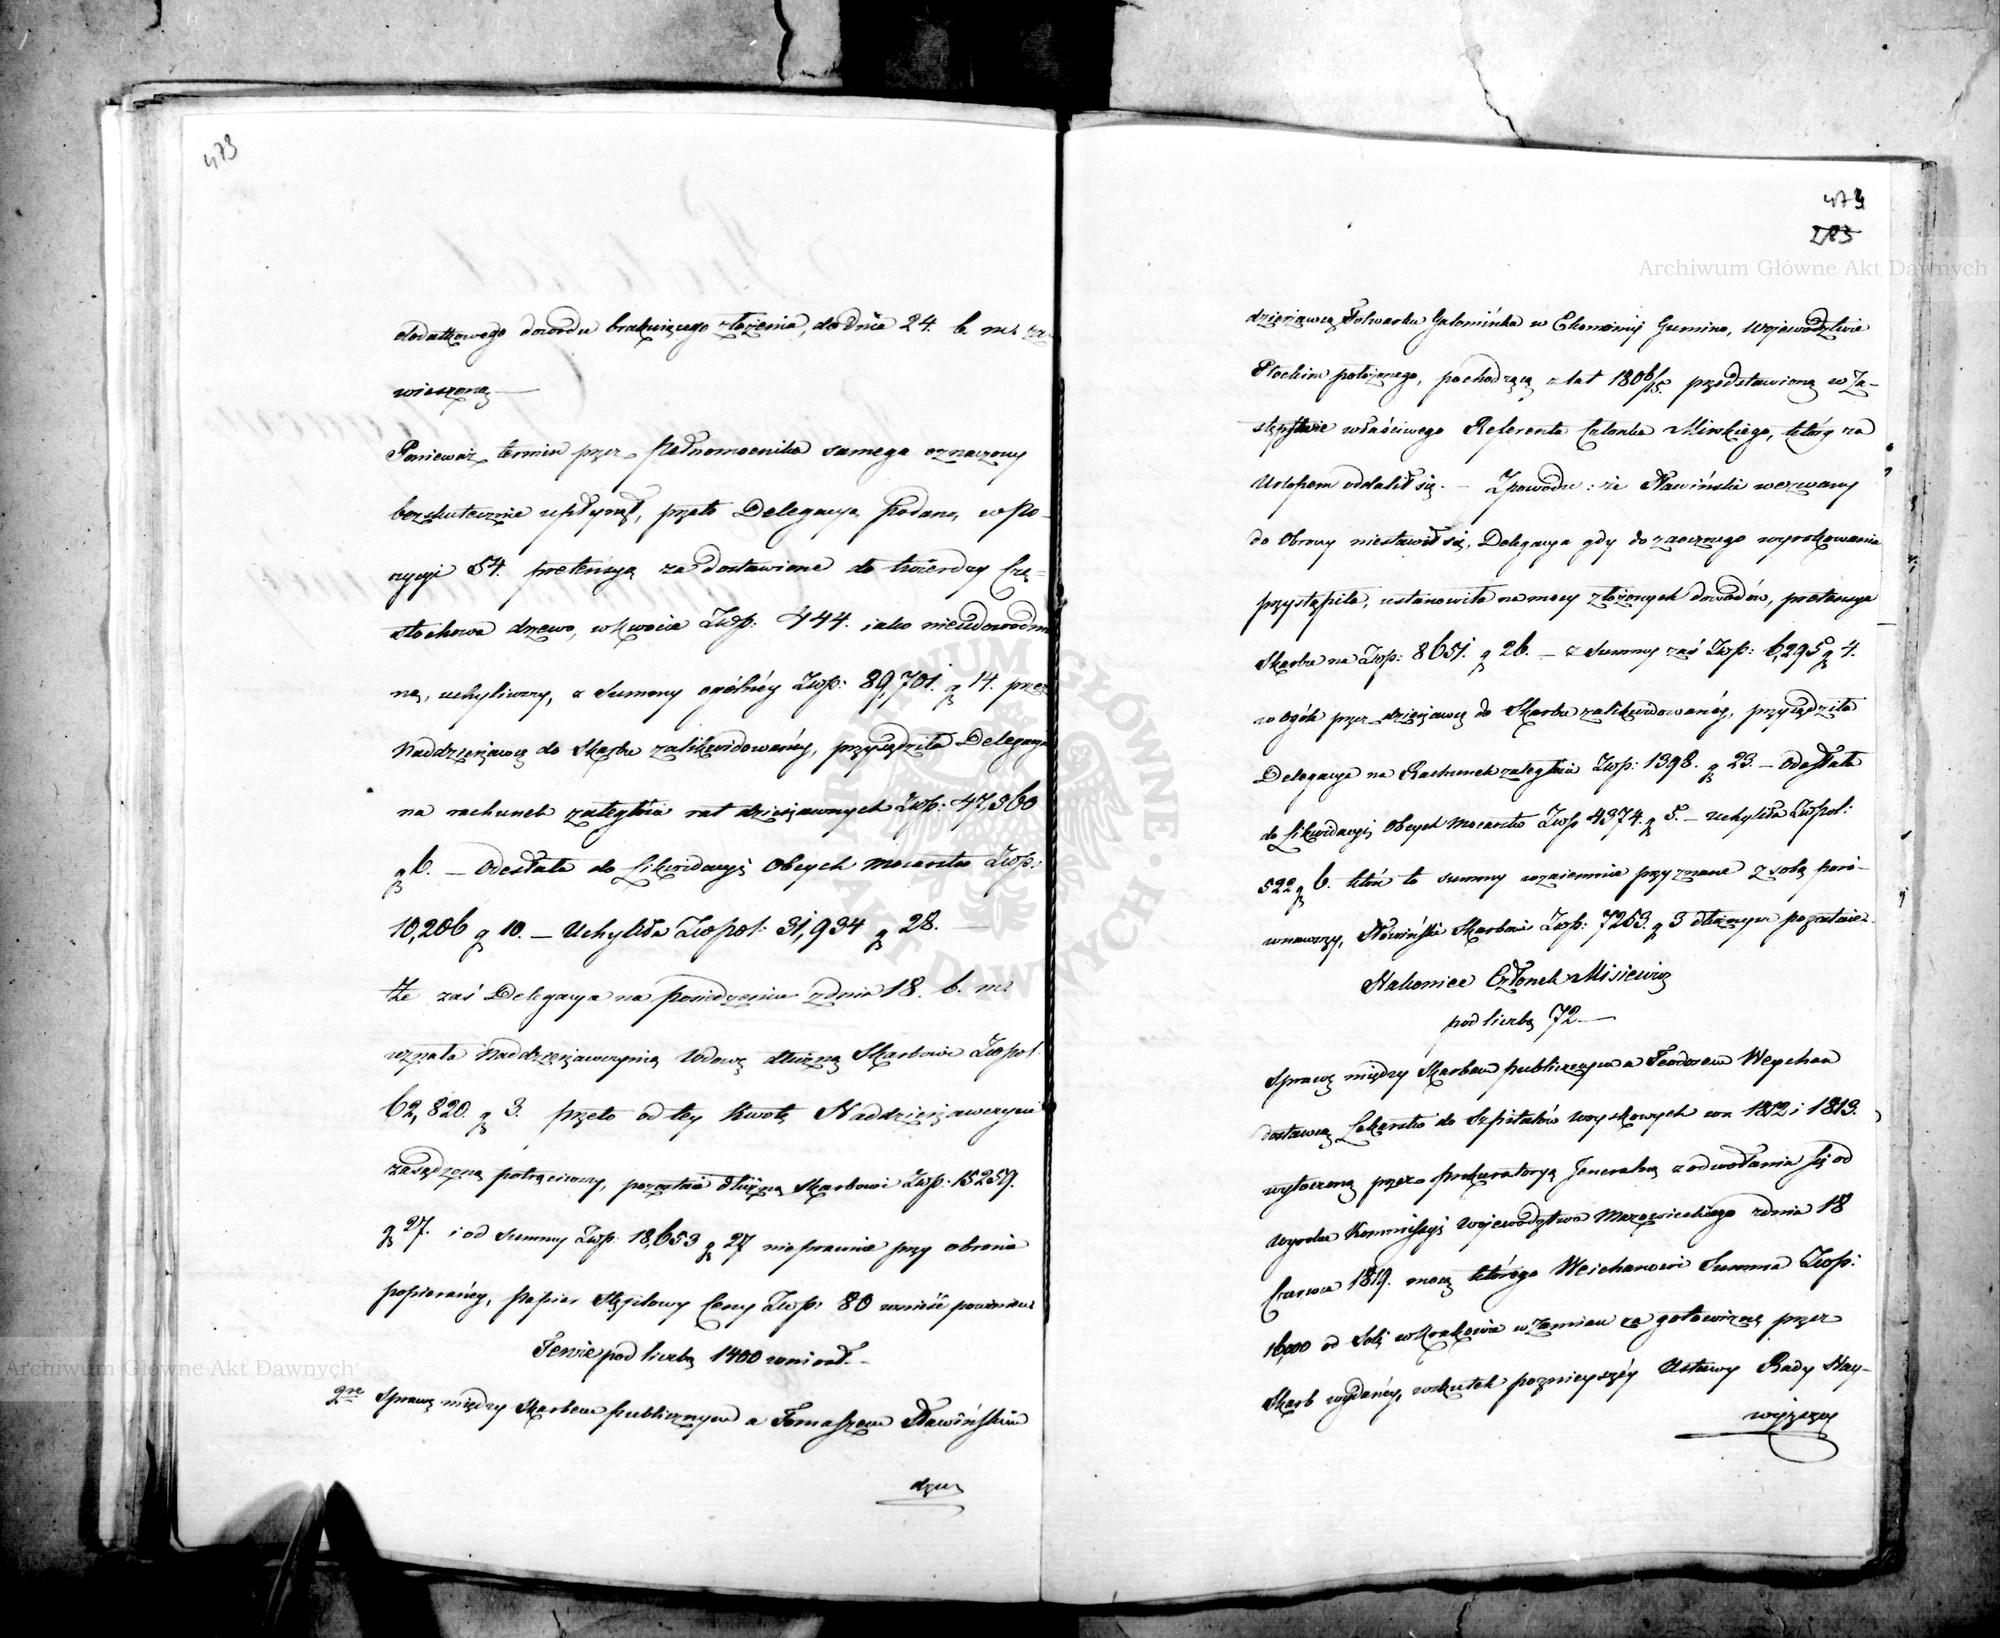 473
dodatkowego dowodu brakuiącego złożenia, do dnia 24. b. m. za-
wieszoną —
Ponieważ termin przez Pełnomocnika samego oznaczony
bezskutecznie upłynął, przeto Delegacya podaną, w po-
zycyi 54. pretensyą za dostawione do twierdzy Czę-
stochowa drzewo, w kwocie Złp: 444. iako nieudowodnio
ną, uchyliwszy, z Summy ogólnéy Złp: 89,701. g 14. przez
Naddzierżawcę do Skarbu zalikwidowanéy, przysądziła Delegacya
na rachunek zaległéŵ rat dzierżawnych Złp: 47,560
g 6. — Odesłała do Likwidacyi Obcych Mocarstw Złp:
10,206 g 10. — Uchyliła Złpol: 31,934 g 28. —
Że zaś Delegacya na posiedzeniu z dnia 18. b. m.
uznała Naddzierżawczynią Wdowę dłużną Skarbowi Złpol:
62,820. g 3. przeto od tey kwoty Naddzierżawczyni
zasądzoną potrąciwszy, pozostaie dłużną Skarbowi Złp: 15259.
g 27. i od summy Złp: 18,653 g 27 nieprawnie przy obronie
popieranéy, Papier Stęplowy Ceny Złp: 80 wnieść powinna
Tenże pod liczbą 1400 wniósł. —
2re Sprawę między Skarbem publicznym a Tomaszem Sławińskim
dzier
474
283
Archiwum Główne Akt Dawnych
dzierżawcą Folwarku Galominka w Ekonomij Gumino, Województwie
Płockim położonego, pochodzącą z lat 1806/15. przedstawioną w Za-
stępstwie właściwego Referenta Członka Mirskiego, który za
Urlopem oddalił się. — Z powodu: że Sławiński wezwany
do Obrony niestawił się, Delegacya gdy do zaocznego wyrokowania
przystąpiła, ustanowiła na mocy złożonych dowodów, pretensye
Skarbu na Złp: 8651. g 26. — z Summy zaś Złp: 6,295 g 4.
w Ogóle przez dzierżawcę do Skarbu zalikwidowanéy, przysądziła
Delegacya na Rachunek zaległéŵ Złp: 1398. g 23. — Odesłała
do Likwidacyi Obcych Mocarstw Złp 4374. g 5. — Uchyliła Złpol:
522 g 6. które to summy wzaiemnie przyznane z sobą poró-
wnawszy, Sławiński Skarbowi Złp: 7253. g 3 dłużnym pozostaie.
Nakoniec Członek Misiewicz
pod liczbą 72 —
Sprawę między Skarbem publicznym a Teodorem Weychan
dostawcą Lekarstw do Szpitalów woyskowych w r. 1812 i 1813.
wytoczoną przez Prokuratoryą Jeneralną z odwołania się od
Wyroku Kommissyi Województwa Mazowieckiego z dnia 18
Czerwca 1819. mocą którego Weichanowi Summa Złp:
16,000 od Soli w Krakowie w zamian za gotowiznę przez
Skarb wydanéy, w skutek poznieyszéy Ustawy Rady Nay-
wyższéy
Archiwum Główne Akt Dawnych
ARCHIWUM GŁÓWNE · AKT DAWNYCH ·